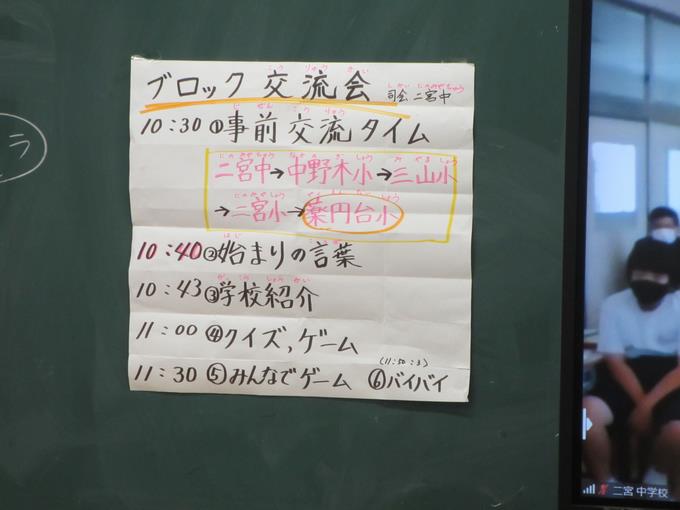 ブロック交流会 司会 二宮中
10:30①事前交流タイム
二宮中→中野木小→三山小
→二宮小→薬円台小
10:40②始まりの言葉
10:43③学校紹介
11:00④クイズ,ゲーム
11:30⑤みんなでゲーム ⑥バイバイ
ラ
二宮 中学校